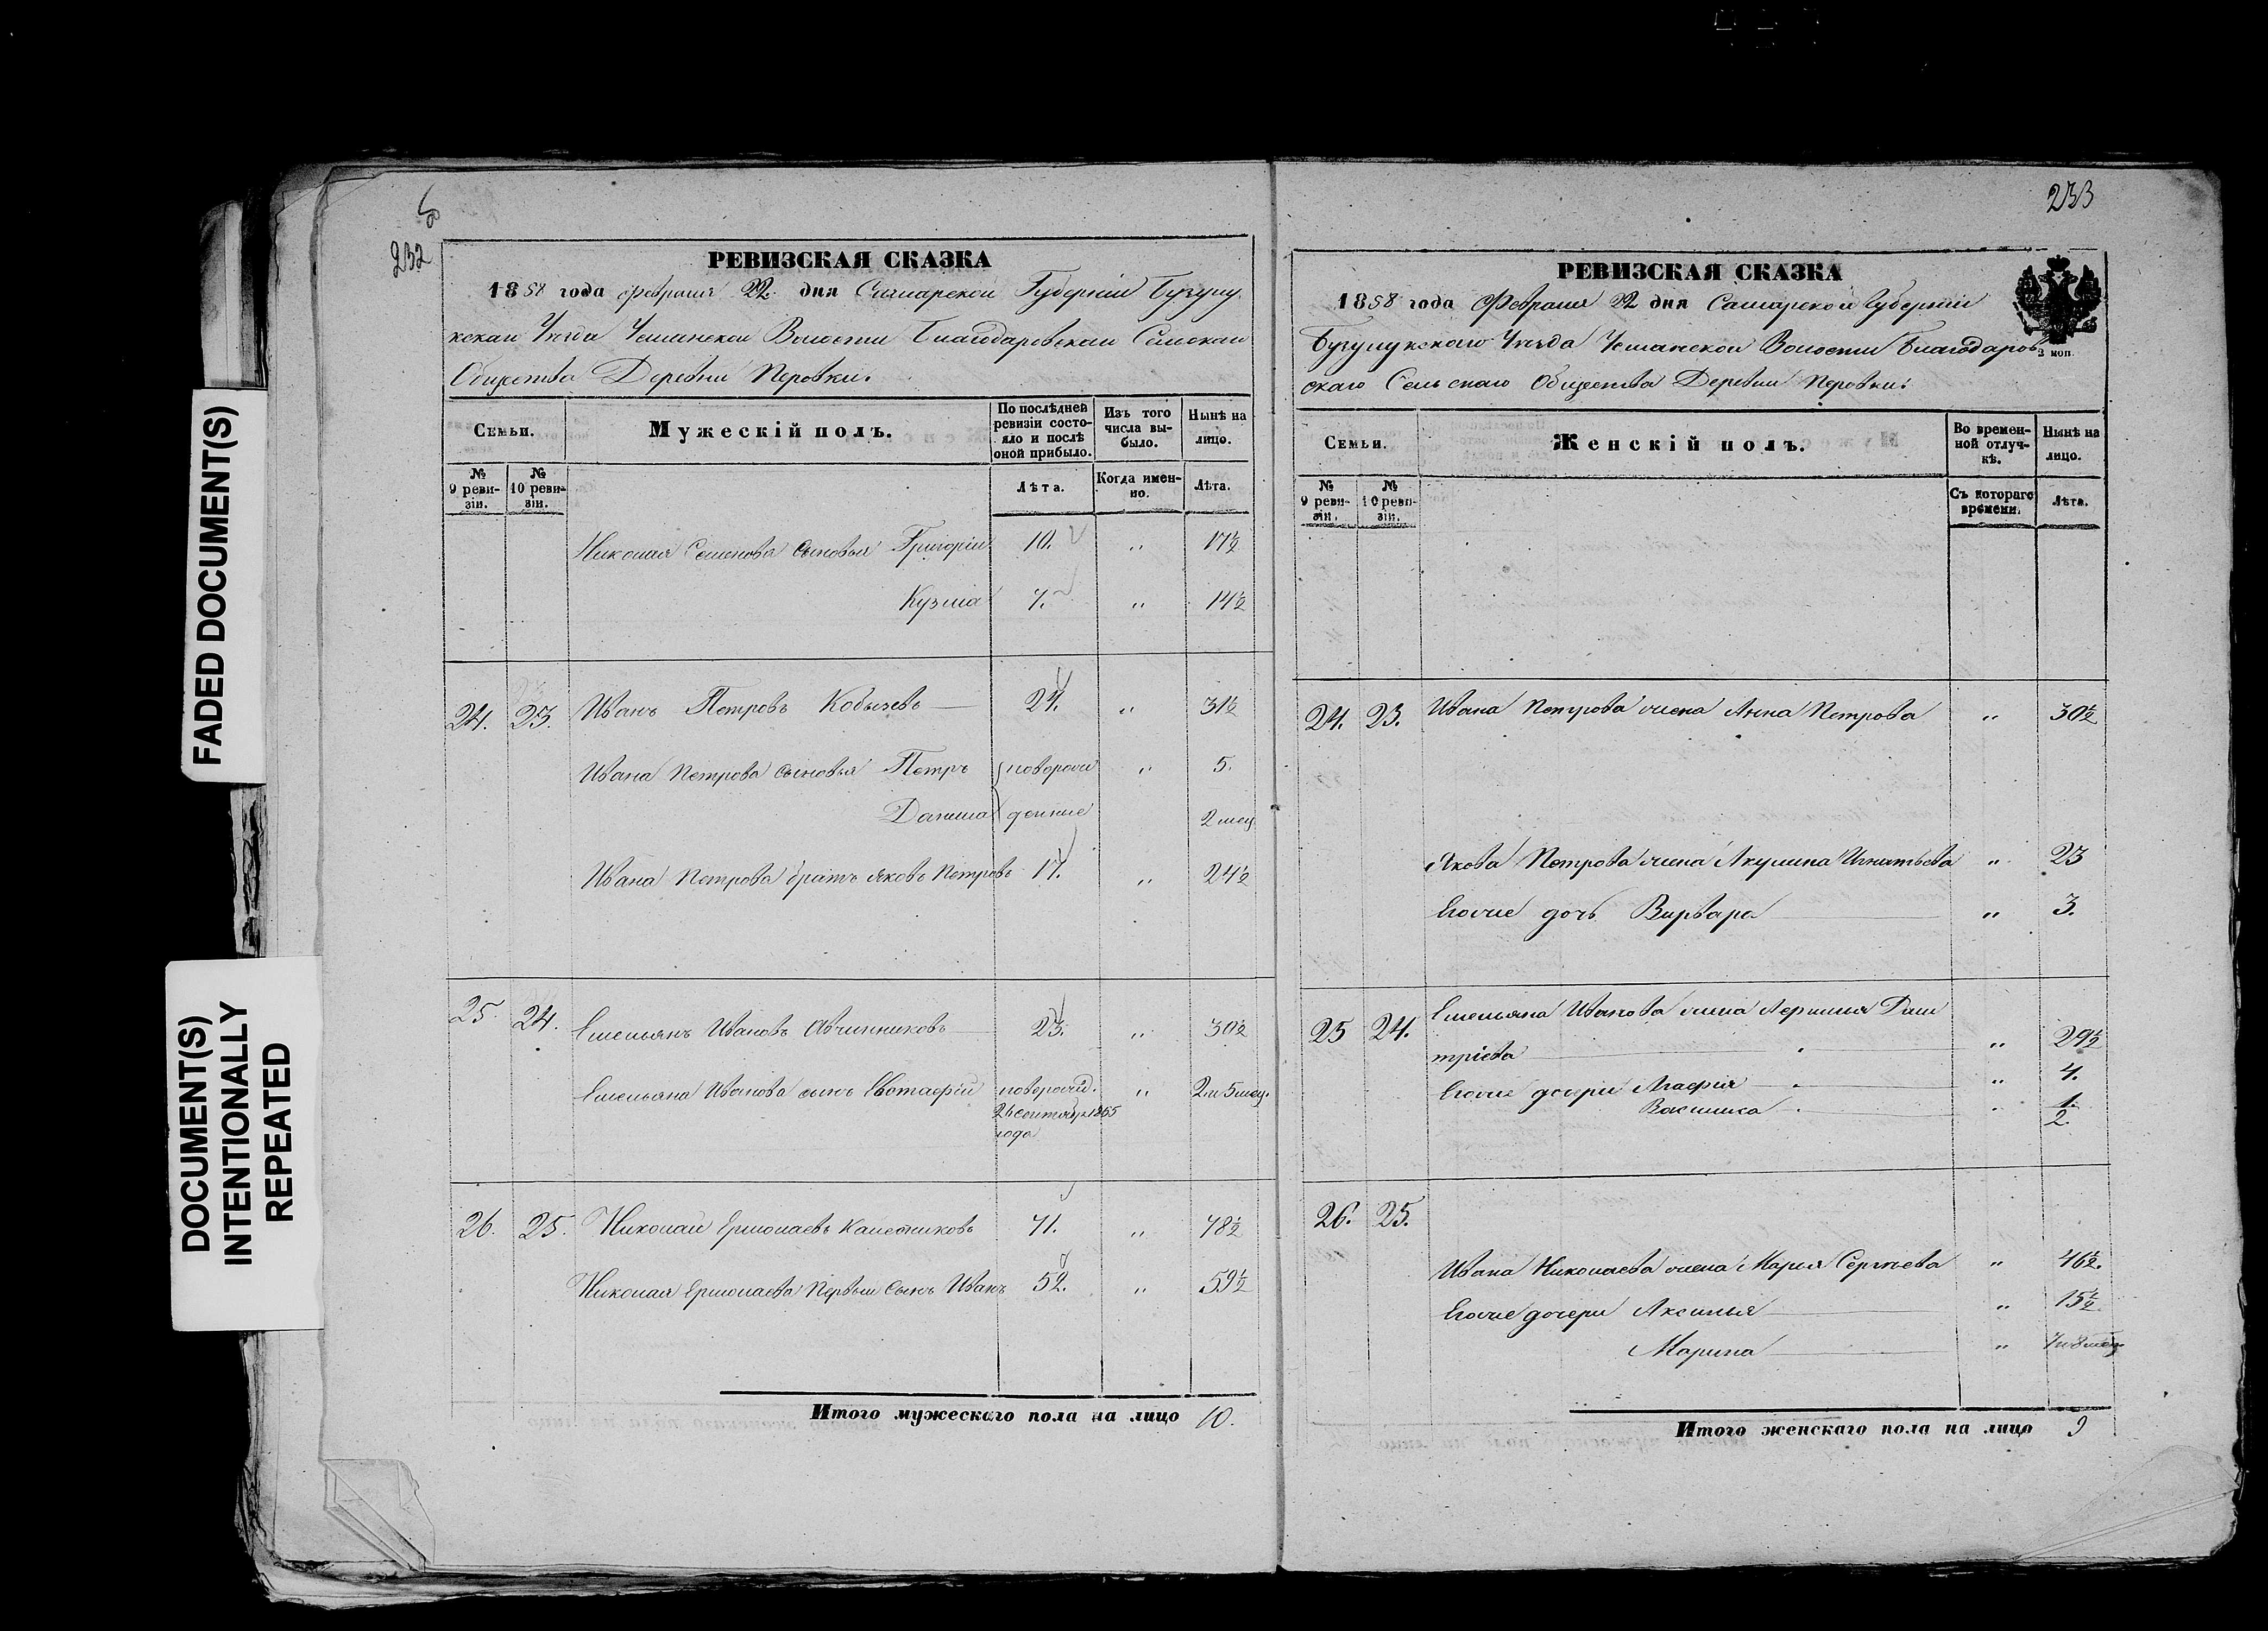 FADED DOCUMENT(S)
DOCUMENT(S)
INTENTIONALLY
REPEATED
232
РЕВИЗСКАЯ СКАЗКА
1858 года Февраля 22 дня Самарской Губерніи Бугуру
Уѣзда Волости Благодаровскаго Сельскаго
Общества Деревни Перовки.
Семьи.
Мужескій полъ.
По послѣдней
ревизіи состо-
яло и послѣ
оной прибыло.
Изъ того
числа вы-
было.
Нынѣ на
лицо.
№
9 реви-
зіи.
№
10 реви-
зіи.
Лѣта.
Когда имен-
но.
Лѣта.
Николая Семенова сыновья Григорій 10. " 17½
Кузма 7. " 14½
24. 23. Иванъ Петровъ 24. " 31½
Ивана Петрова сыновья Петръ новорож " 5.
Данила денные 2 мец
Ивана Петрова братъ Яковъ Петровъ 17. " 24½
25. 24. Емельянъ Ивановъ Авчинниковъ 23. " 30½
Емельяна Иванова сынъ новорожд. " 2 и 5 мец.
года
26. 25. Николай Ермолаевъ 71. " 78½
Николая Ермолаева Первый сынъ Иванъ 52. " 59½
Итого мужескаго пола на лицо 10.
233
РЕВИЗСКАЯ СКАЗКА
1858 года Февраля 22 дня Самарской Губерніи
Бугурукскаго Уѣзда Волости Благодаров
скаго Сельскаго Общества Деревни Перовки:
Семьи.
Женскій полъ.
Во времен-
ной отлуч-
кѣ.
Нынѣ на
лицо.
№
9 реви-
зіи.
№
10 реви-
зіи.
Съ котораго
времени.
Лѣта.
24. 23. Ивана Петрова жена Анна Петрова " 30½
Якова Петрова жена Акулина Игнатьева " 23
Егоже дочь Варвара " 3.
25 24. Емельяна Иванова жена Дми
тріева " 29½
Егоже дочери Агафія " 4.
Василиса " ½.
26. 25.
Ивана Николаева жена Марья Сергѣева " 46½.
Егоже дочери Аксинья " 15½
Марина "
Итого женскаго пола на лицо 9